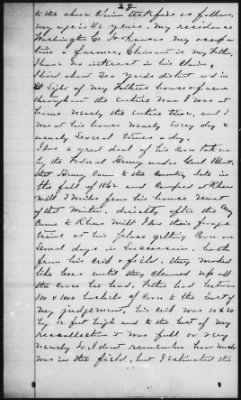 28
to the above Claim testifies as follows,
my age is 40 years. My residence
Washington Co Arkansas My occupa
tion a farmer, Claimant is my Father,
I have no interest in his Claim,
I lived about 200 yards distant and in
of my Fathers house & farm
throughout the entire war I was at
home nearly the entire time, and I
was at his house nearly every day &
nearly several times a day.
I saw a great deal of his Corn taken
by the Federal Army under Genl Blunt.
Army Came to the Country late in
the fall of 1862 and Camped at Rheas
Mill 7 Miles from his house most
of that Winter. directly after the Army
Came to Rheas Mill I saw their forage
trains at his place getting Corn on
several days in succession. both
from his crib & field. they worked
like bees until they cleaned up all
the corn he had. Father had between
& 1000 bushels of Corn to the best of
my judgement, his crib was 10 x 20
by feet high and to the best of my
recollection it was full or very
nearly so, I dont remember how much
was in the field, but I estimated the